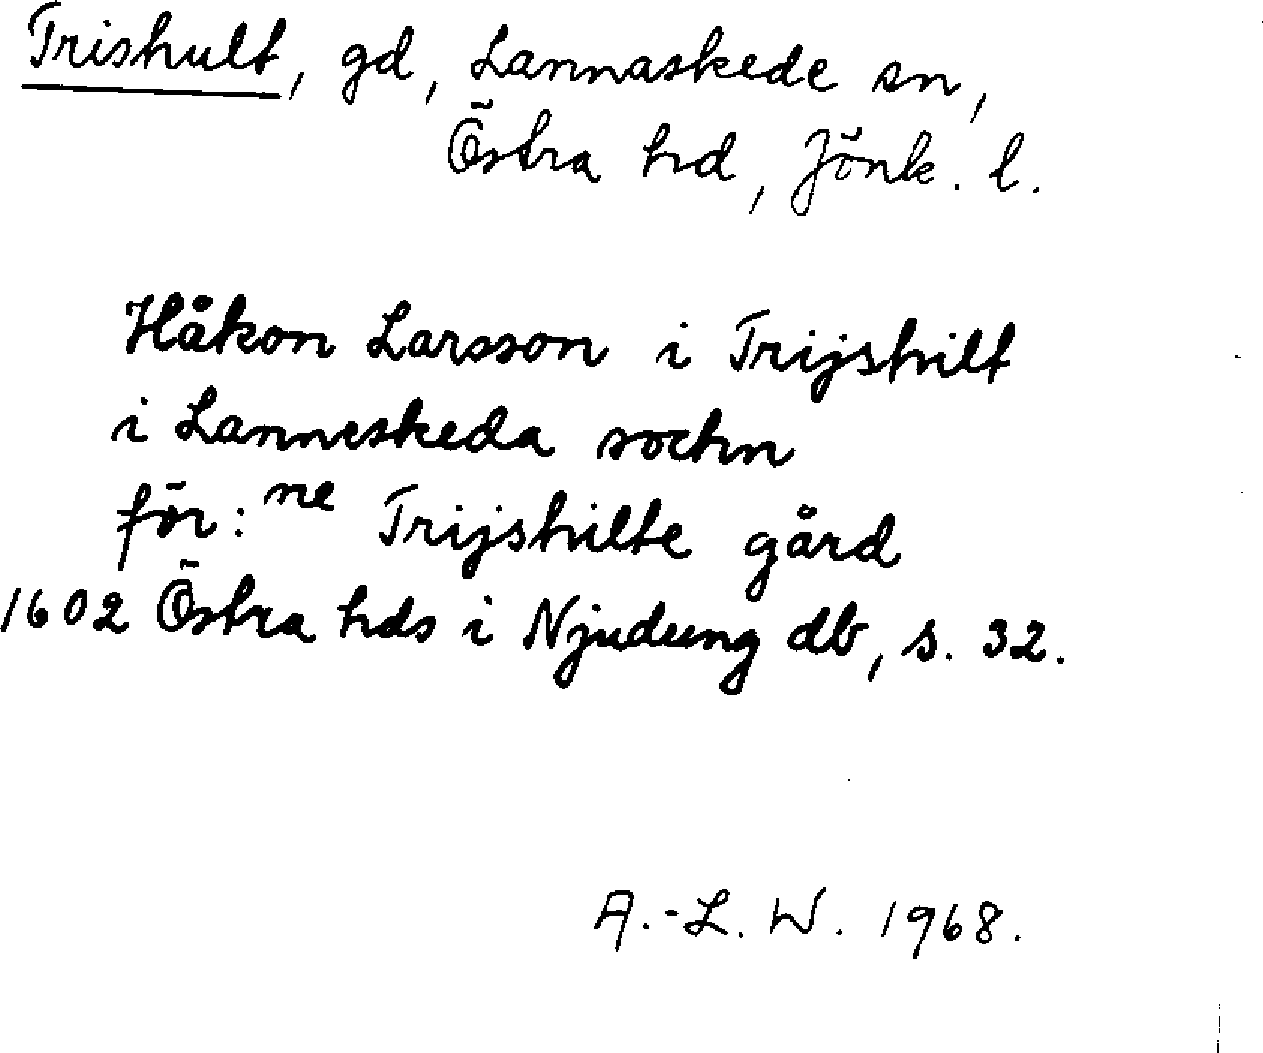 Trishult, gd, Lannaskede sn,
Östra hd, Jönk. l.
Håkon Larsson i Trijshilt
i Lanneskeda sochn
för:ne Trijshilte gård
1602 Östra hds i Njudung db, s. 32.
A.-L. W. 1968.